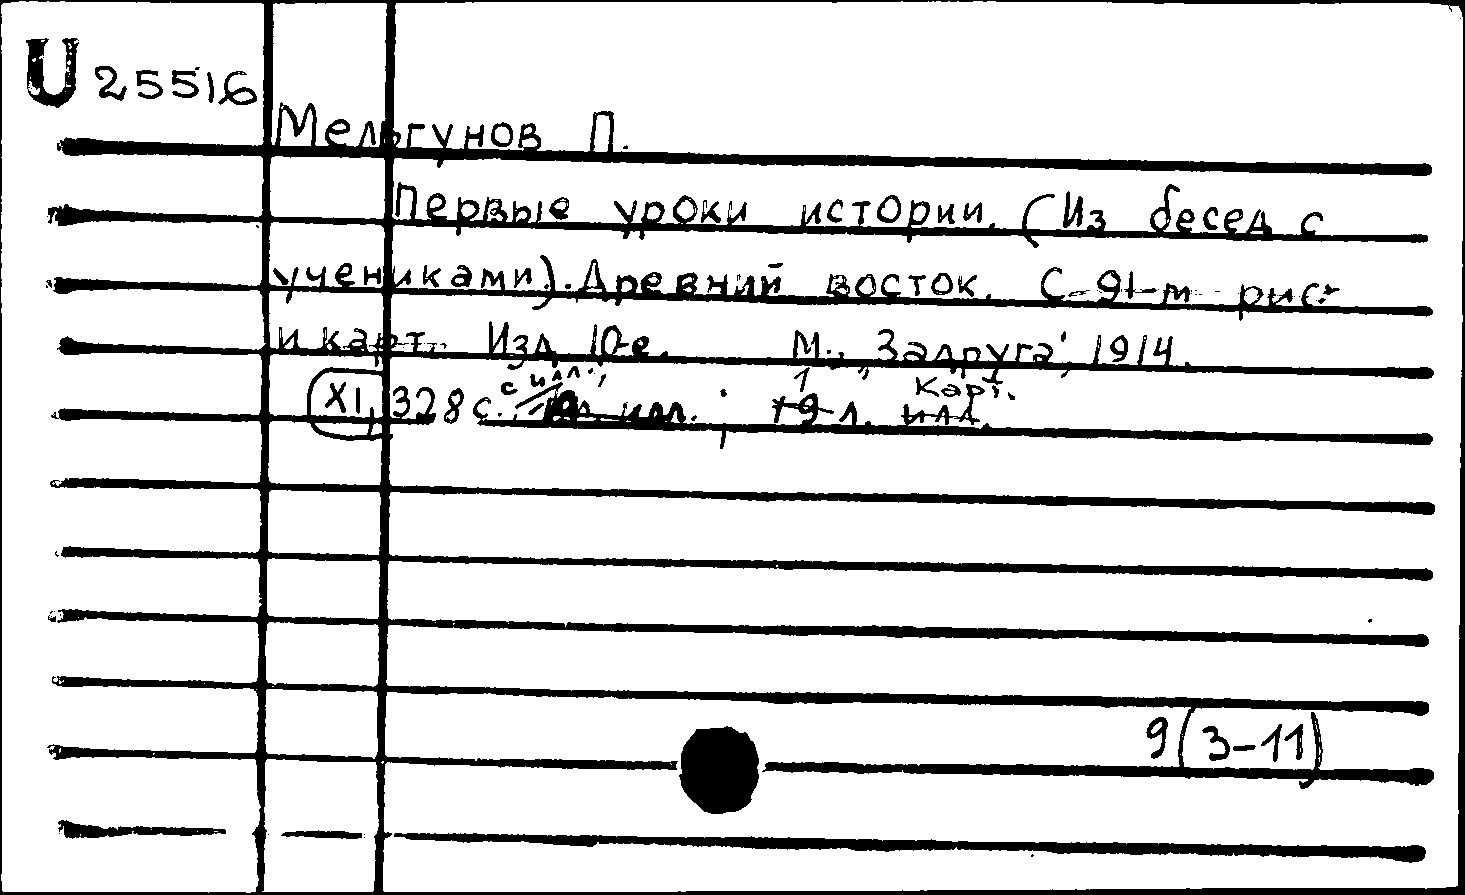 U 25516
Мельгунов П.
Первые уроки истории. (Из бесед с
учениками). Древний восток. С 91-м рис.
и карт. Изд. 10-е. М., „Задруга“, 1914.
XI, 328 с. с илл.; 1 л. карт.
9(3-11)